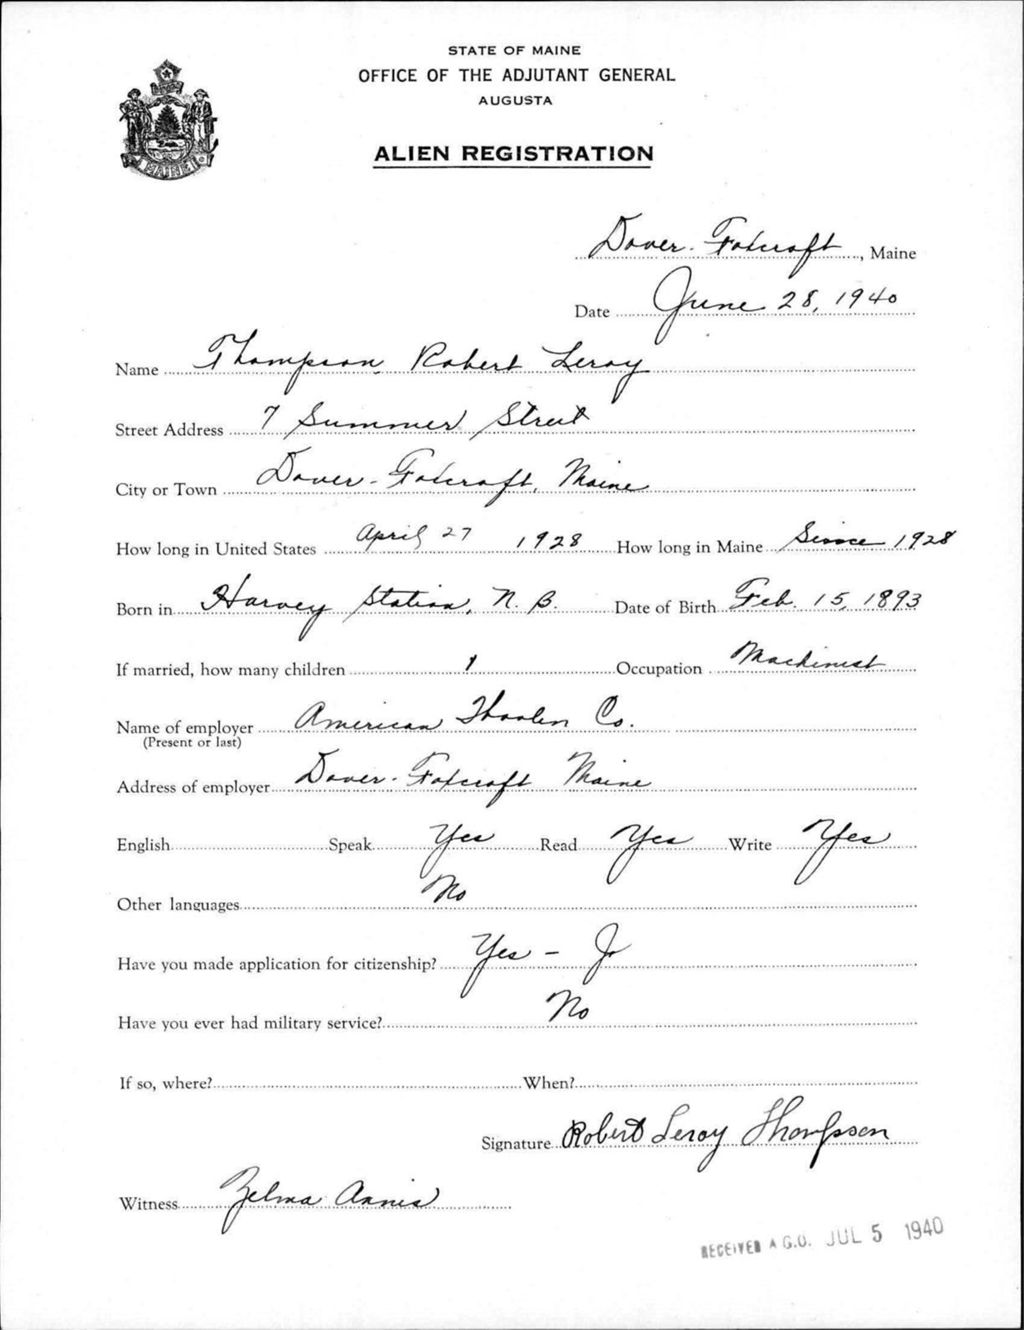 STATE OF MAINE
OFFICE OF THE ADJUTANT GENERAL
AUGUSTA
ALIEN REGISTRATION
MAINE
Dover-Foxcroft, Maine
Date June 28, 1940
Name Thompson, Robert Leroy
Street Address 7 Summer Street
City or Town Dover-Foxcroft, Maine
How long in United States April 27 1928 How long in Maine Since 1928
Born in Harvey Station, N. B. Date of Birth Feb. 15, 1893
If married, how many children 1 Occupation Machinist
Name of employer American Woolen Co.
(Present or last)
Address of employer Dover-Foxcroft Maine
English Speak Yes Read Yes Write Yes
Other languages No
Have you made application for citizenship? Yes -
Have you ever had military service? No
If so, where? When?
Signature Robert Leroy Thompson
Witness Zelma Annis
RECEIVED A.G.O. JUL 5 1940